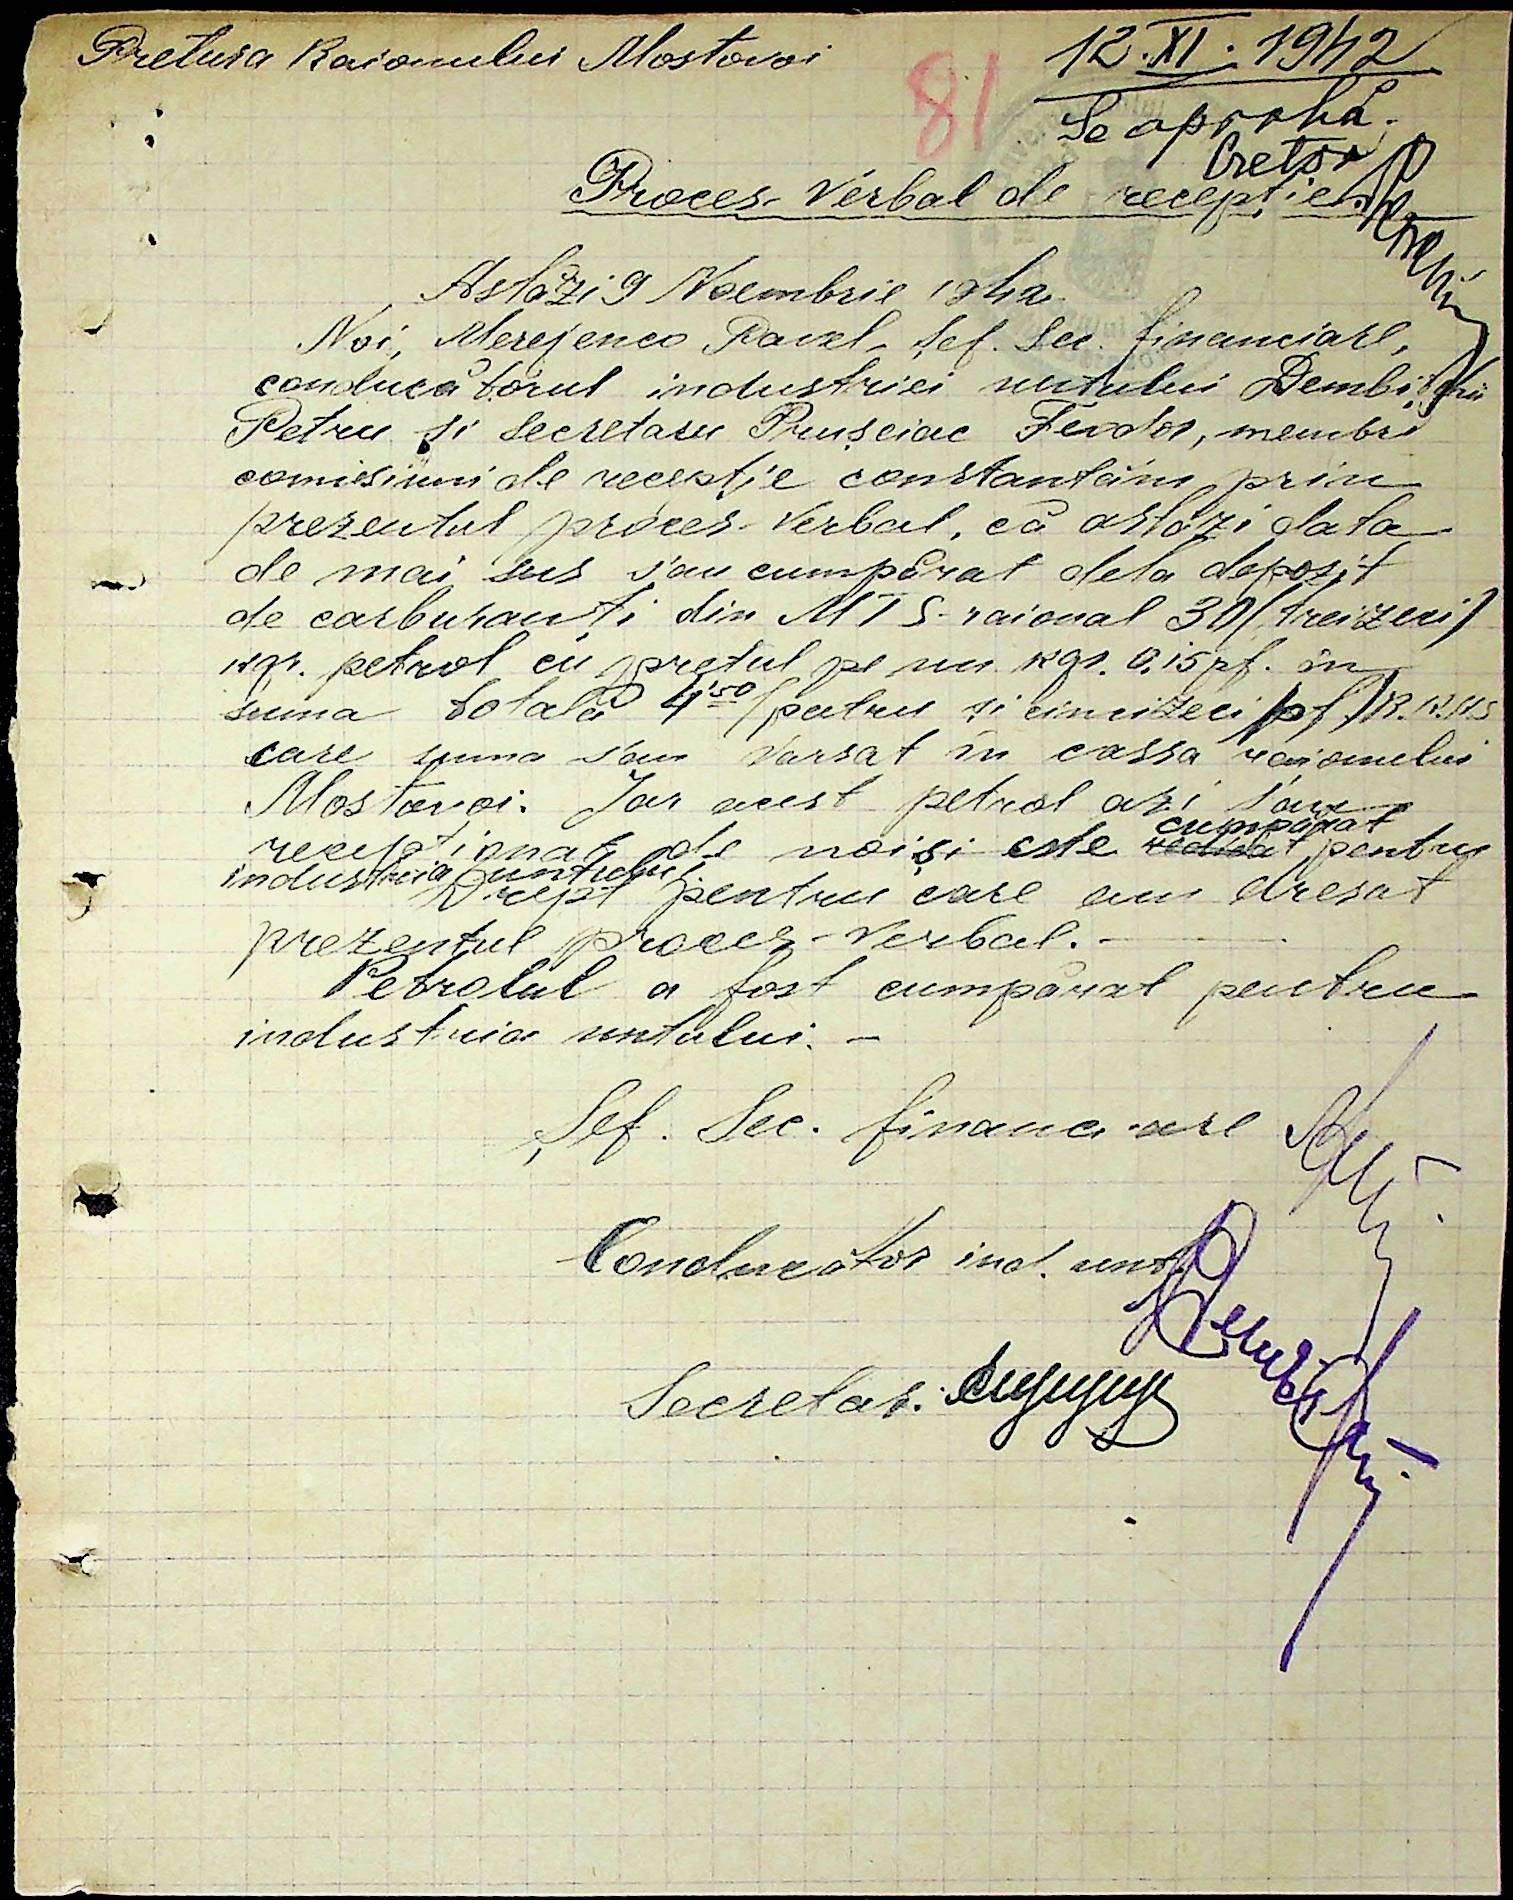 Pretura Raionului Mostovoi
12.XI.1942
81
Se aprobă.
Pretor
Proces-Verbal de recepție.
Astăzi 9 Noembrie 1942
Noi, Merejenco Pavel, Șef. Sec. financiare,
conducătorul industriei untului Dembițchii
Petru și Secretaru Prușciac Feodor, membri
comisiuni de recepție constantăm prin
prezentul proces-Verbal, că astăzi data
de mai sus s'au cumpărat dela depozit
de carburanți din MTS-raional 30 (treizeci)
kgr. petrol cu prețul pe un kgr. 0,15 pf. în
suma totală 4,50 (patru și cincizeci pf.) R.K.K.S
care suma s'au varsat în cassa raionului
Mostovoi. Iar acest petrol azi s'au
recepționat de noi și este cumpărat pentru
industria untului.
Drept pentru care am dresat
prezentul proces-Verbal. —
Petrolul a fost cumpărat pentru
industria untului. —
Șef. Sec. financiare
Conducător ind. unt.
Secretar.